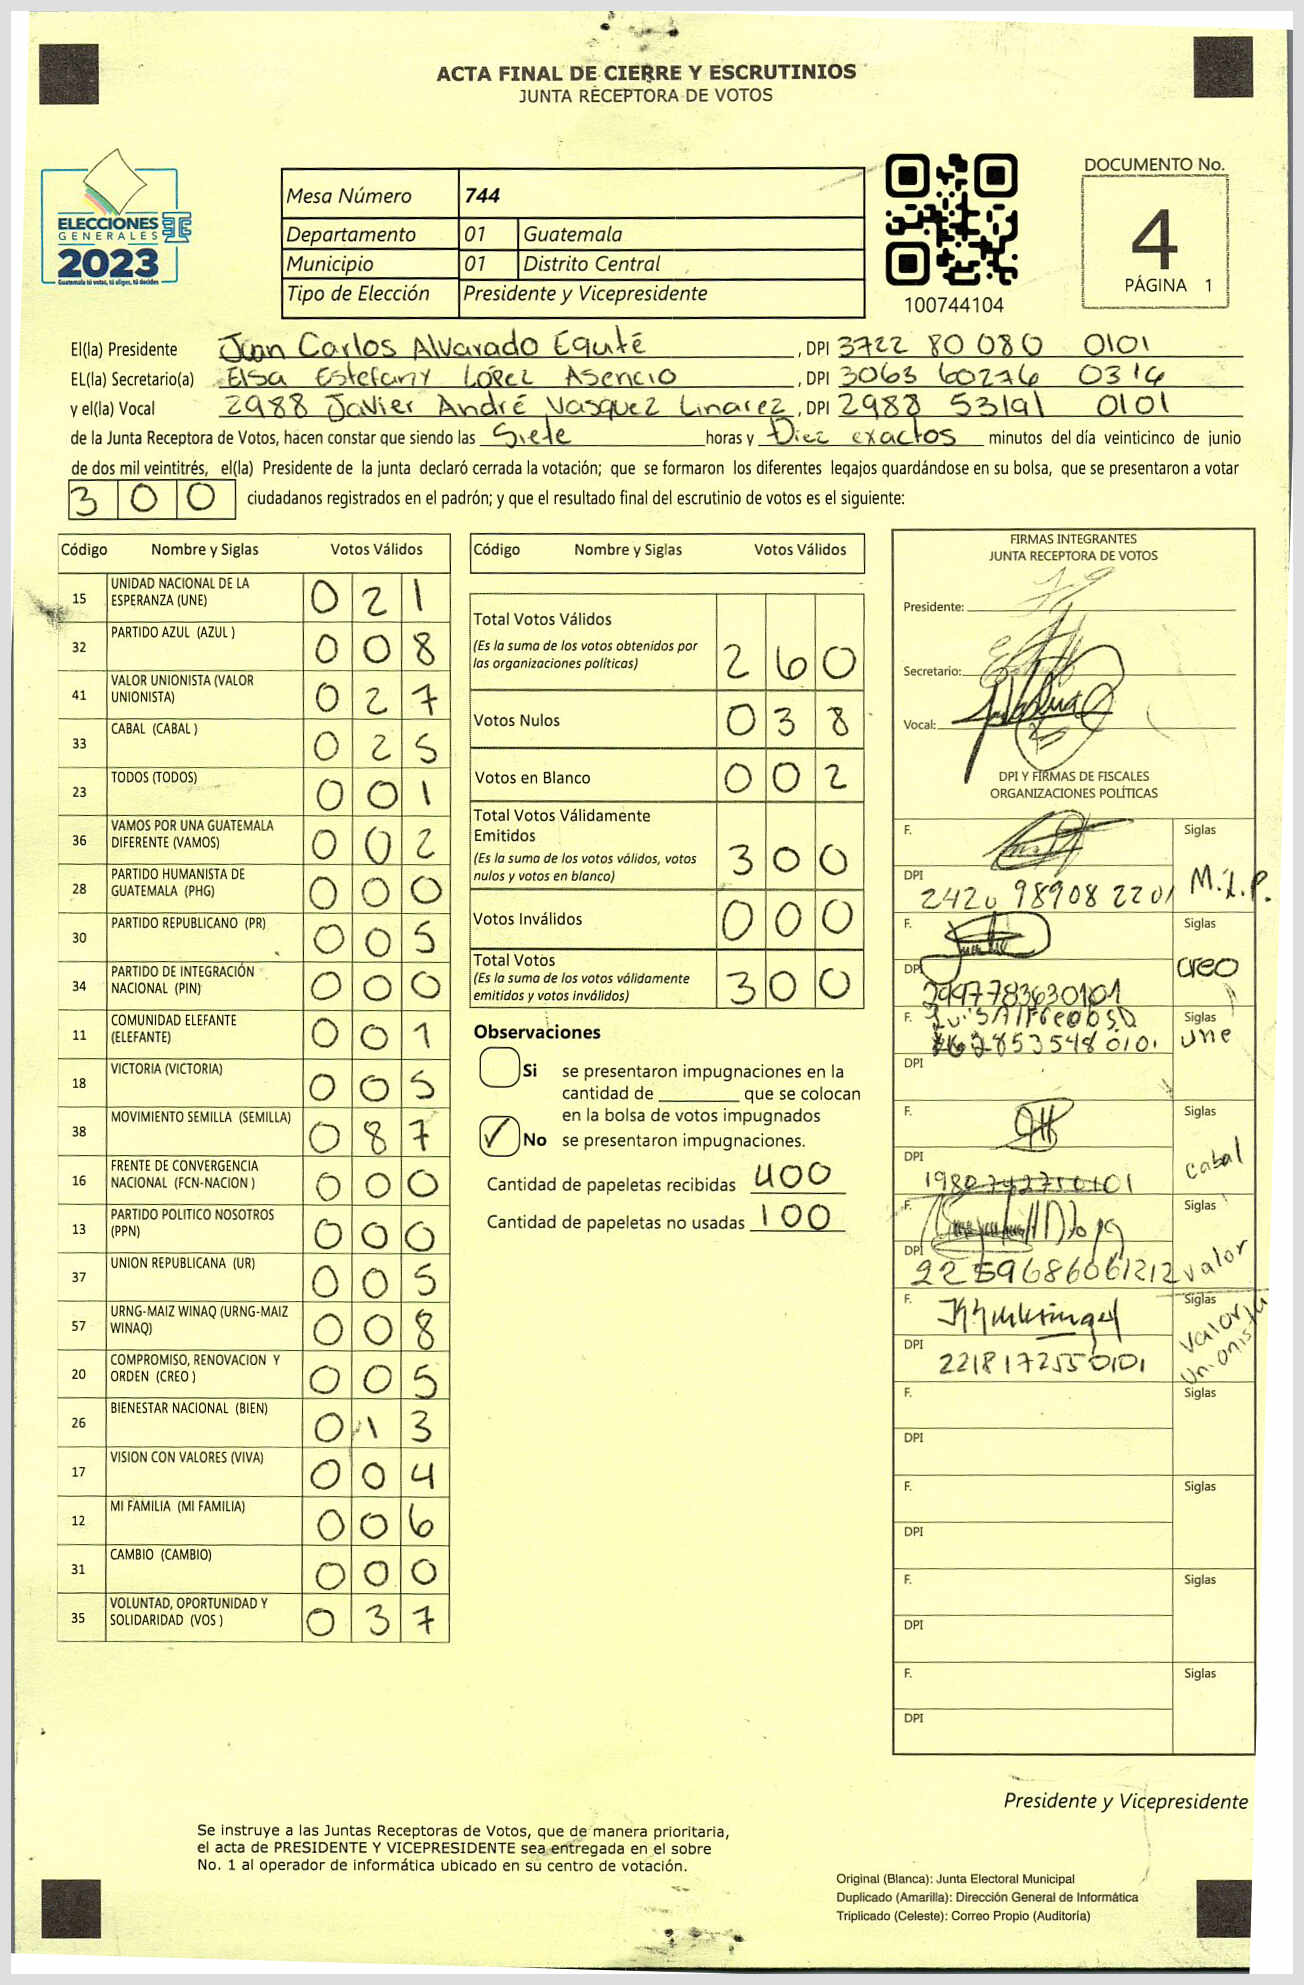 ACTA FINAL DE CIERRE Y ESCRUTINIOS
JUNTA RECEPTORA DE VOTOS
ELECCIONES
GENERALES
2023
Guatemala tú votas, tú eliges, tú decides
Mesa Número 744
Departamento 01 Guatemala
Municipio 01 Distrito Central
Tipo de Elección Presidente y Vicepresidente
100744104
DOCUMENTO No.
4
PÁGINA 1
El(la) Presidente Juan Carlos Alvarado Equité, DPI 3722 80 080 0101
EL(la) Secretario(a) Elsa Estefany López Asencio, DPI 3063 60276 0314
y el(la) Vocal 2988 Javier André Vasquez Linarez, DPI 2988 53191 0101
de la Junta Receptora de Votos, hacen constar que siendo las Siete horas y Diez exactos minutos del día veinticinco de junio
de dos mil veintitrés, el(la) Presidente de la junta declaró cerrada la votación; que se formaron los diferentes legajos guardándose en su bolsa, que se presentaron a votar
300 ciudadanos registrados en el padrón; y que el resultado final del escrutinio de votos es el siguiente:
Código Nombre y Siglas Votos Válidos
15 UNIDAD NACIONAL DE LA ESPERANZA (UNE) 021
32 PARTIDO AZUL (AZUL ) 008
41 VALOR UNIONISTA (VALOR UNIONISTA) 027
33 CABAL (CABAL ) 025
23 TODOS (TODOS) 001
36 VAMOS POR UNA GUATEMALA DIFERENTE (VAMOS) 002
28 PARTIDO HUMANISTA DE GUATEMALA (PHG) 000
30 PARTIDO REPUBLICANO (PR) 005
34 PARTIDO DE INTEGRACIÓN NACIONAL (PIN) 000
11 COMUNIDAD ELEFANTE (ELEFANTE) 001
18 VICTORIA (VICTORIA) 005
38 MOVIMIENTO SEMILLA (SEMILLA) 087
16 FRENTE DE CONVERGENCIA NACIONAL (FCN-NACION ) 000
13 PARTIDO POLITICO NOSOTROS (PPN) 000
37 UNION REPUBLICANA (UR) 005
57 URNG-MAIZ WINAQ (URNG-MAIZ WINAQ) 008
20 COMPROMISO, RENOVACION Y ORDEN (CREO ) 005
26 BIENESTAR NACIONAL (BIEN) 013
17 VISION CON VALORES (VIVA) 004
12 MI FAMILIA (MI FAMILIA) 006
31 CAMBIO (CAMBIO) 000
35 VOLUNTAD, OPORTUNIDAD Y SOLIDARIDAD (VOS ) 037
Código Nombre y Siglas Votos Válidos
Total Votos Válidos 260
(Es la suma de los votos obtenidos por
las organizaciones políticas)
Votos Nulos 038
Votos en Blanco 002
Total Votos Válidamente
Emitidos 300
(Es la suma de los votos válidos, votos
nulos y votos en blanco)
Votos Inválidos 000
Total Votos 300
(Es la suma de los votos válidamente
emitidos y votos inválidos)
Observaciones
Si se presentaron impugnaciones en la
cantidad de ________ que se colocan
en la bolsa de votos impugnados
✓ No se presentaron impugnaciones.
Cantidad de papeletas recibidas 400
Cantidad de papeletas no usadas 100
FIRMAS INTEGRANTES
JUNTA RECEPTORA DE VOTOS
Presidente:
Secretario:
Vocal:
DPI Y FIRMAS DE FISCALES
ORGANIZACIONES POLÍTICAS
F. Siglas
DPI 2420 98908 2201 M.L.P.
F. Siglas
DPI 2997783630101 creo
F. Siglas
DPI une
F. Siglas
DPI 1980742750101 cabal
F. Siglas
DPI 2259686061212 valor
F. Siglas
DPI 2218172550101 Valor Unionista
F. Siglas
DPI
F. Siglas
DPI
F. Siglas
DPI
F. Siglas
DPI
Presidente y Vicepresidente
Se instruye a las Juntas Receptoras de Votos, que de manera prioritaria,
el acta de PRESIDENTE Y VICEPRESIDENTE sea entregada en el sobre
No. 1 al operador de informática ubicado en su centro de votación.
Original (Blanca): Junta Electoral Municipal
Duplicado (Amarilla): Dirección General de Informática
Triplicado (Celeste): Correo Propio (Auditoría)